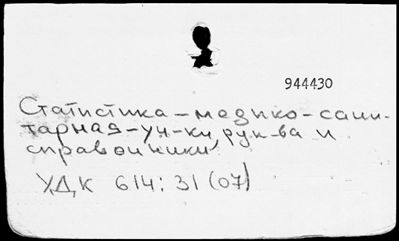 944430
Статистика – медико-сани-
тарная – уч-ки, рук-ва и
справочники
УДК 614:31(07)